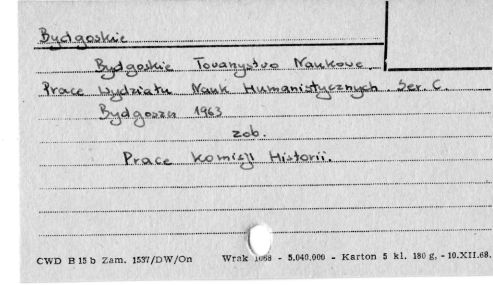 Bydgoskie
Bydgoskie Towarzystwo Naukowe.
Prace Wydziału Nauk Humanistycznych. Ser. C.
Bydgoszcz 1963
zob.
Prace Komisji Historii.
CWD B 15 b Zam. 1537/DW/On Wrak 1068 - 5.040.000 - Karton 5 kl. 180 g, - 10.XII.68.